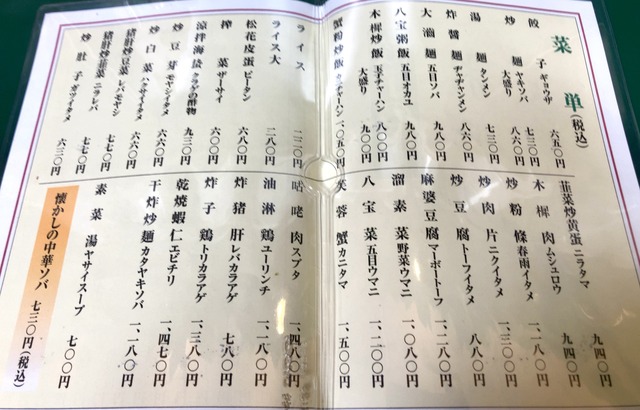 菜単(税込)
餃子 ギョウザ 六五〇円
炒麺 ヤキソバ 七三〇円
大盛り 八六〇円
湯麺 タンメン 七三〇円
炸醤麺 ヂャヂャンメン 八六〇円
大滷麺 五目ソバ 九〇〇円
八宝粥飯 五目オカユ 九〇〇円
木樨炒飯 玉子チャーハン 八〇〇円
大盛り 九〇〇円
蟹粉炒飯 カニチャーハン 一、〇五〇円
韮菜炒黄蛋 ニラタマ 九四〇円
木樨肉 ムシュロウ 九四〇円
炒粉條 春雨イタメ 一、一八〇円
炒肉片 ニクイタメ 一、三〇〇円
炒豆腐 トーフイタメ 八八〇円
麻婆豆腐 マーボートーフ 一、二〇〇円
溜素菜 野菜ウマニ 一、〇八〇円
八宝菜 五目ウマニ 一、二〇〇円
芙蓉蟹 カニタマ 一、五〇〇円
ライス 二二〇円
ライス大 二八〇円
松花皮蛋 ピータン 六八〇円
榨菜 ザーサイ 六〇〇円
涼拌海蜇 クラゲの酢物 九三〇円
炒豆芽 モヤシイタメ 六六〇円
炒白菜 ハクサイイタメ 六六〇円
猪肝炒豆菜 レバモヤシ 七七〇円
猪肝炒韮菜 ニラレバ 七七〇円
炒肚子 ガツイタメ 六三〇円
咕咾肉 スブタ 一、四八〇円
油淋鶏 ユーリンチ 一、一八〇円
炸猪肝 レバカラアゲ 七八〇円
炸子鶏 トリカラアゲ 一、三八〇円
乾焼蝦仁 エビチリ 一、四七〇円
干炸炒麺 カタヤキソバ 一、一八〇円
素菜湯 ヤサイスープ 七〇〇円
懐かしの中華ソバ 七三〇円(税込)